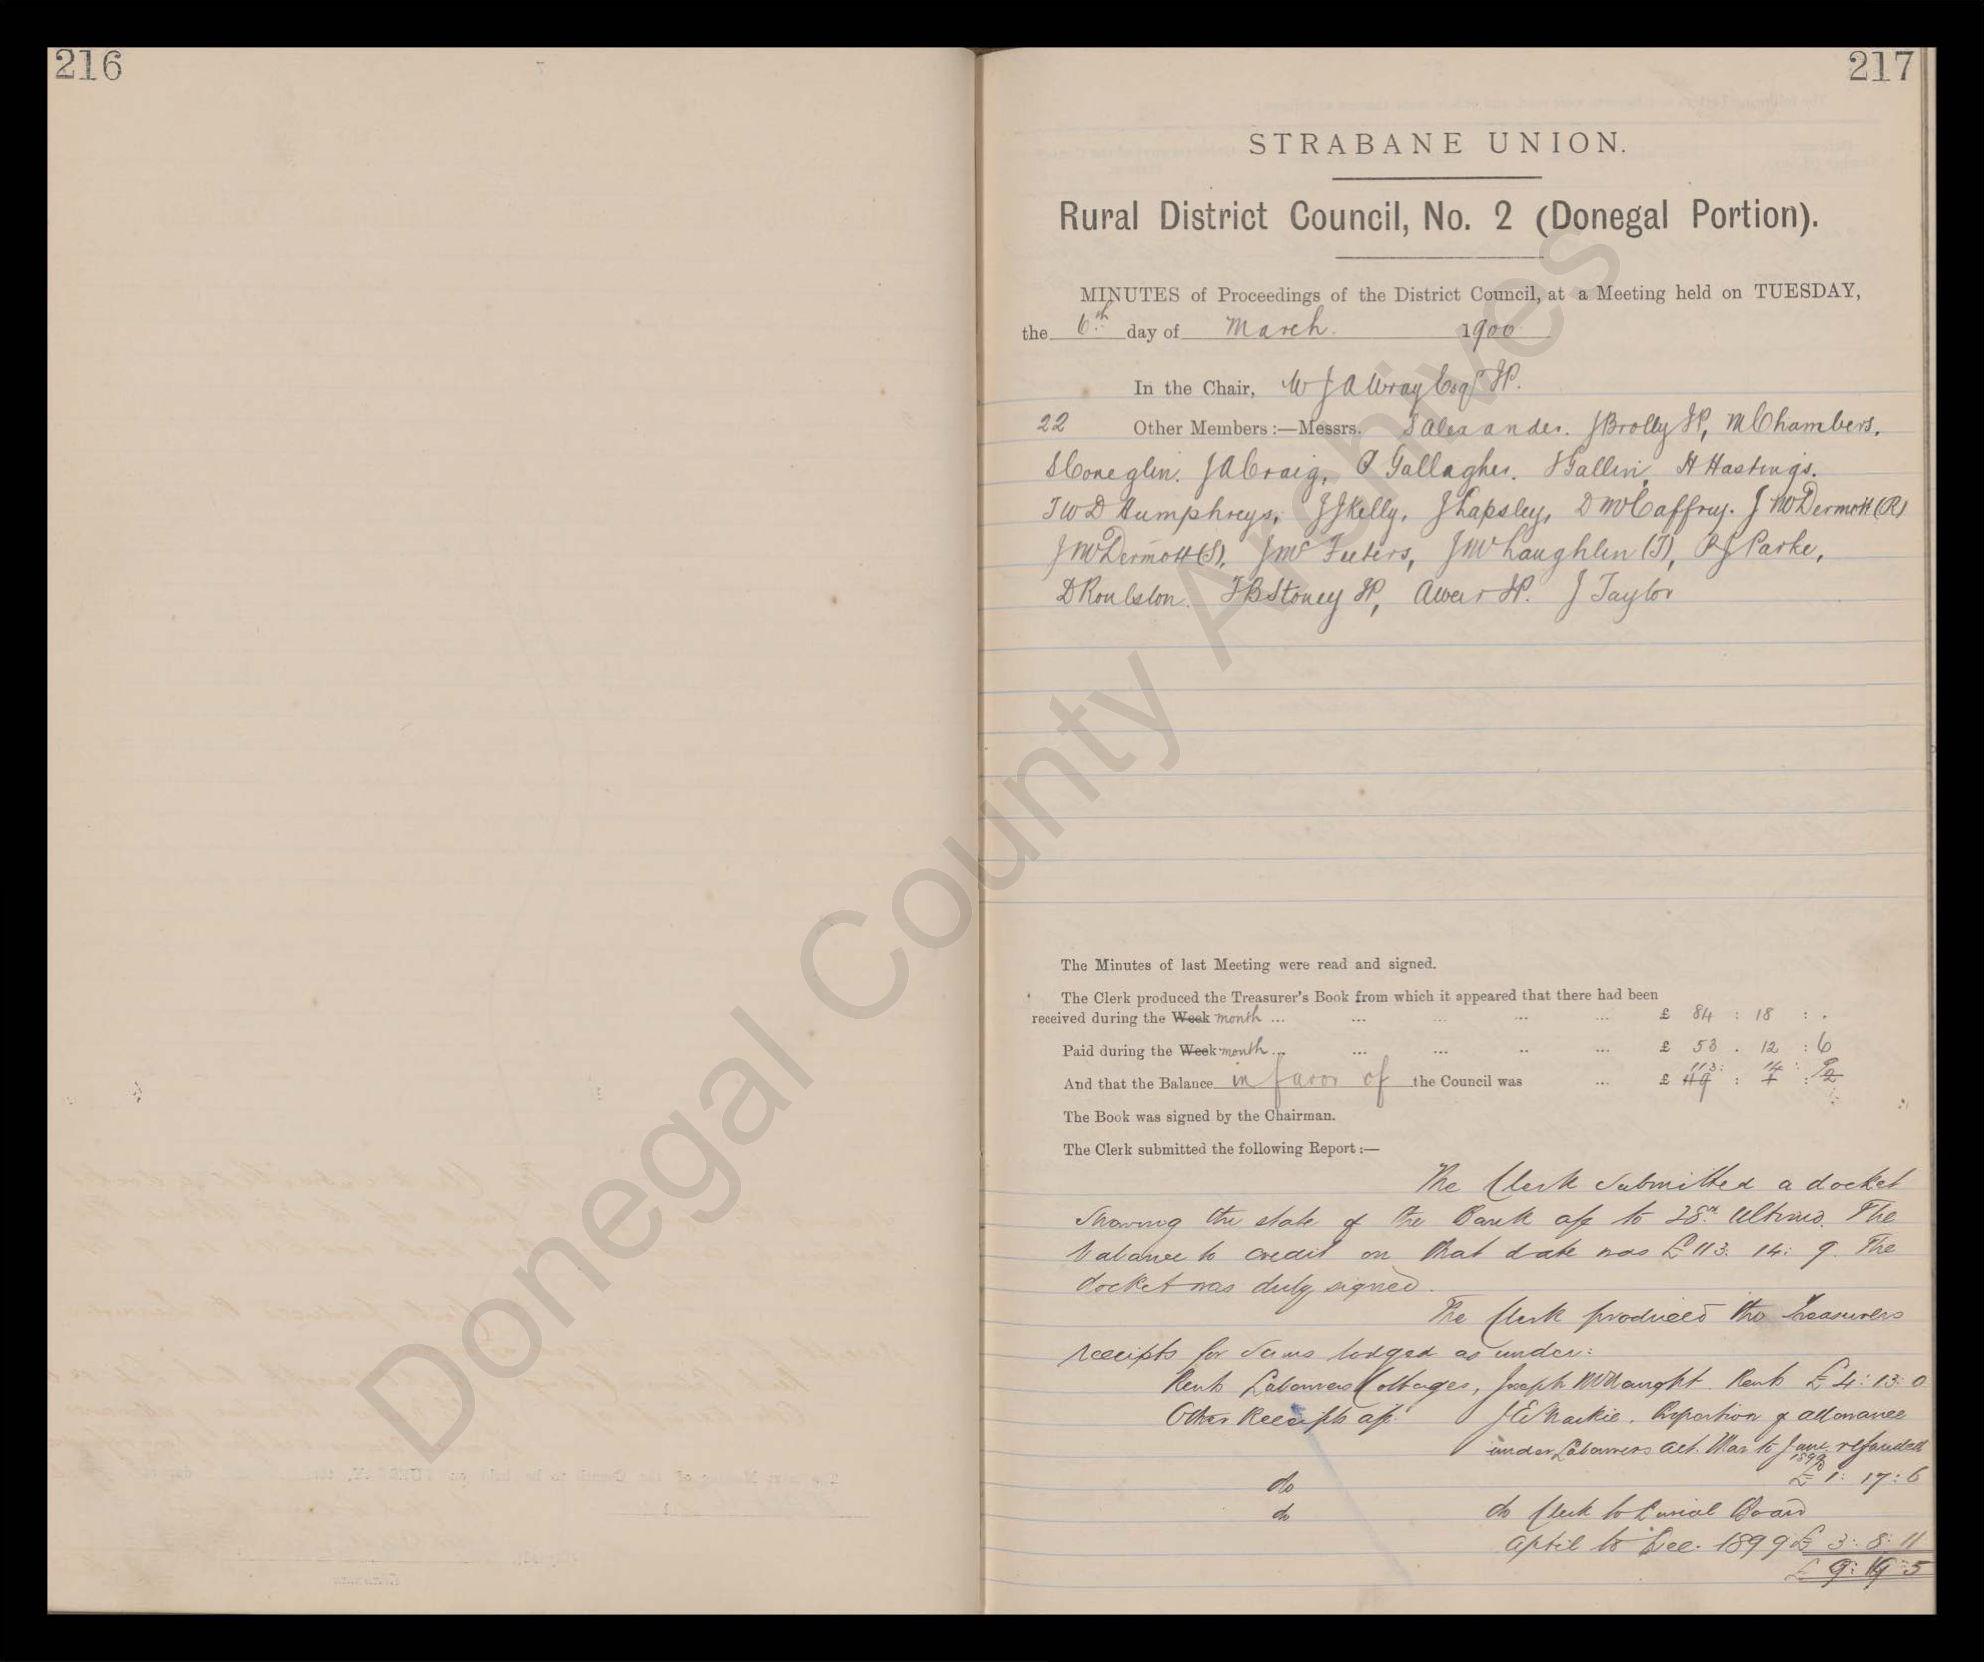 216
217
STRABANE UNION.
Rural District Council, No. 2 (Donegal Portion).
MINUTES of Proceedings of the District Council, at a Meeting held on TUESDAY,
the 6th day of March 1900
In the Chair, W J A Wray Esqr JP.
22 Other Members :—Messrs. S Alexander. J Brolly JP, M Chambers,
S Coneglin. J A Craig, P Gallagher. J Gallen, H Hastings.
T W D Humphreys, J J Kelly, J Lapsley, D McCaffrey. J McDermott (R)
J McDermott (S), J McFeeters, J McLaughlin (T), R J Parke,
D Roulston. T B Stoney JP, A Weir JP. J Taylor
The Minutes of last Meeting were read and signed.
The Clerk produced the Treasurer's Book from which it appeared that there had been
received during the Week month ... ... ... ... ... £ 84 : 18 : .
Paid during the Week month ... ... ... .. ... £ 53 . 12 : 6
113 : 14 : 9
And that the Balance in favor of the Council was ... £ 49 : 1 : 2
The Book was signed by the Chairman.
The Clerk submitted the following Report :—
The Clerk submitted a docket
showing the state of the Bank a/c to 28th Ultimo. The
balance to credit on that date was £113: 14: 9. The
docket was duly signed.
The Clerk produced the Treasurers
receipts for sums lodged as under:
Rents Labourers Cottages, Joseph McNaught. Rents £4: 13: 0
Other Receipts a/c J E Mackie. Proportion of allowance
under Labourers Act. Mar to June refunded
1899
do £1: 17: 6
do do Clerk to Burial Board
April to Dec. 1899 £ 3: 8: 11
£ 9: 19: 5
Donegal County Archives